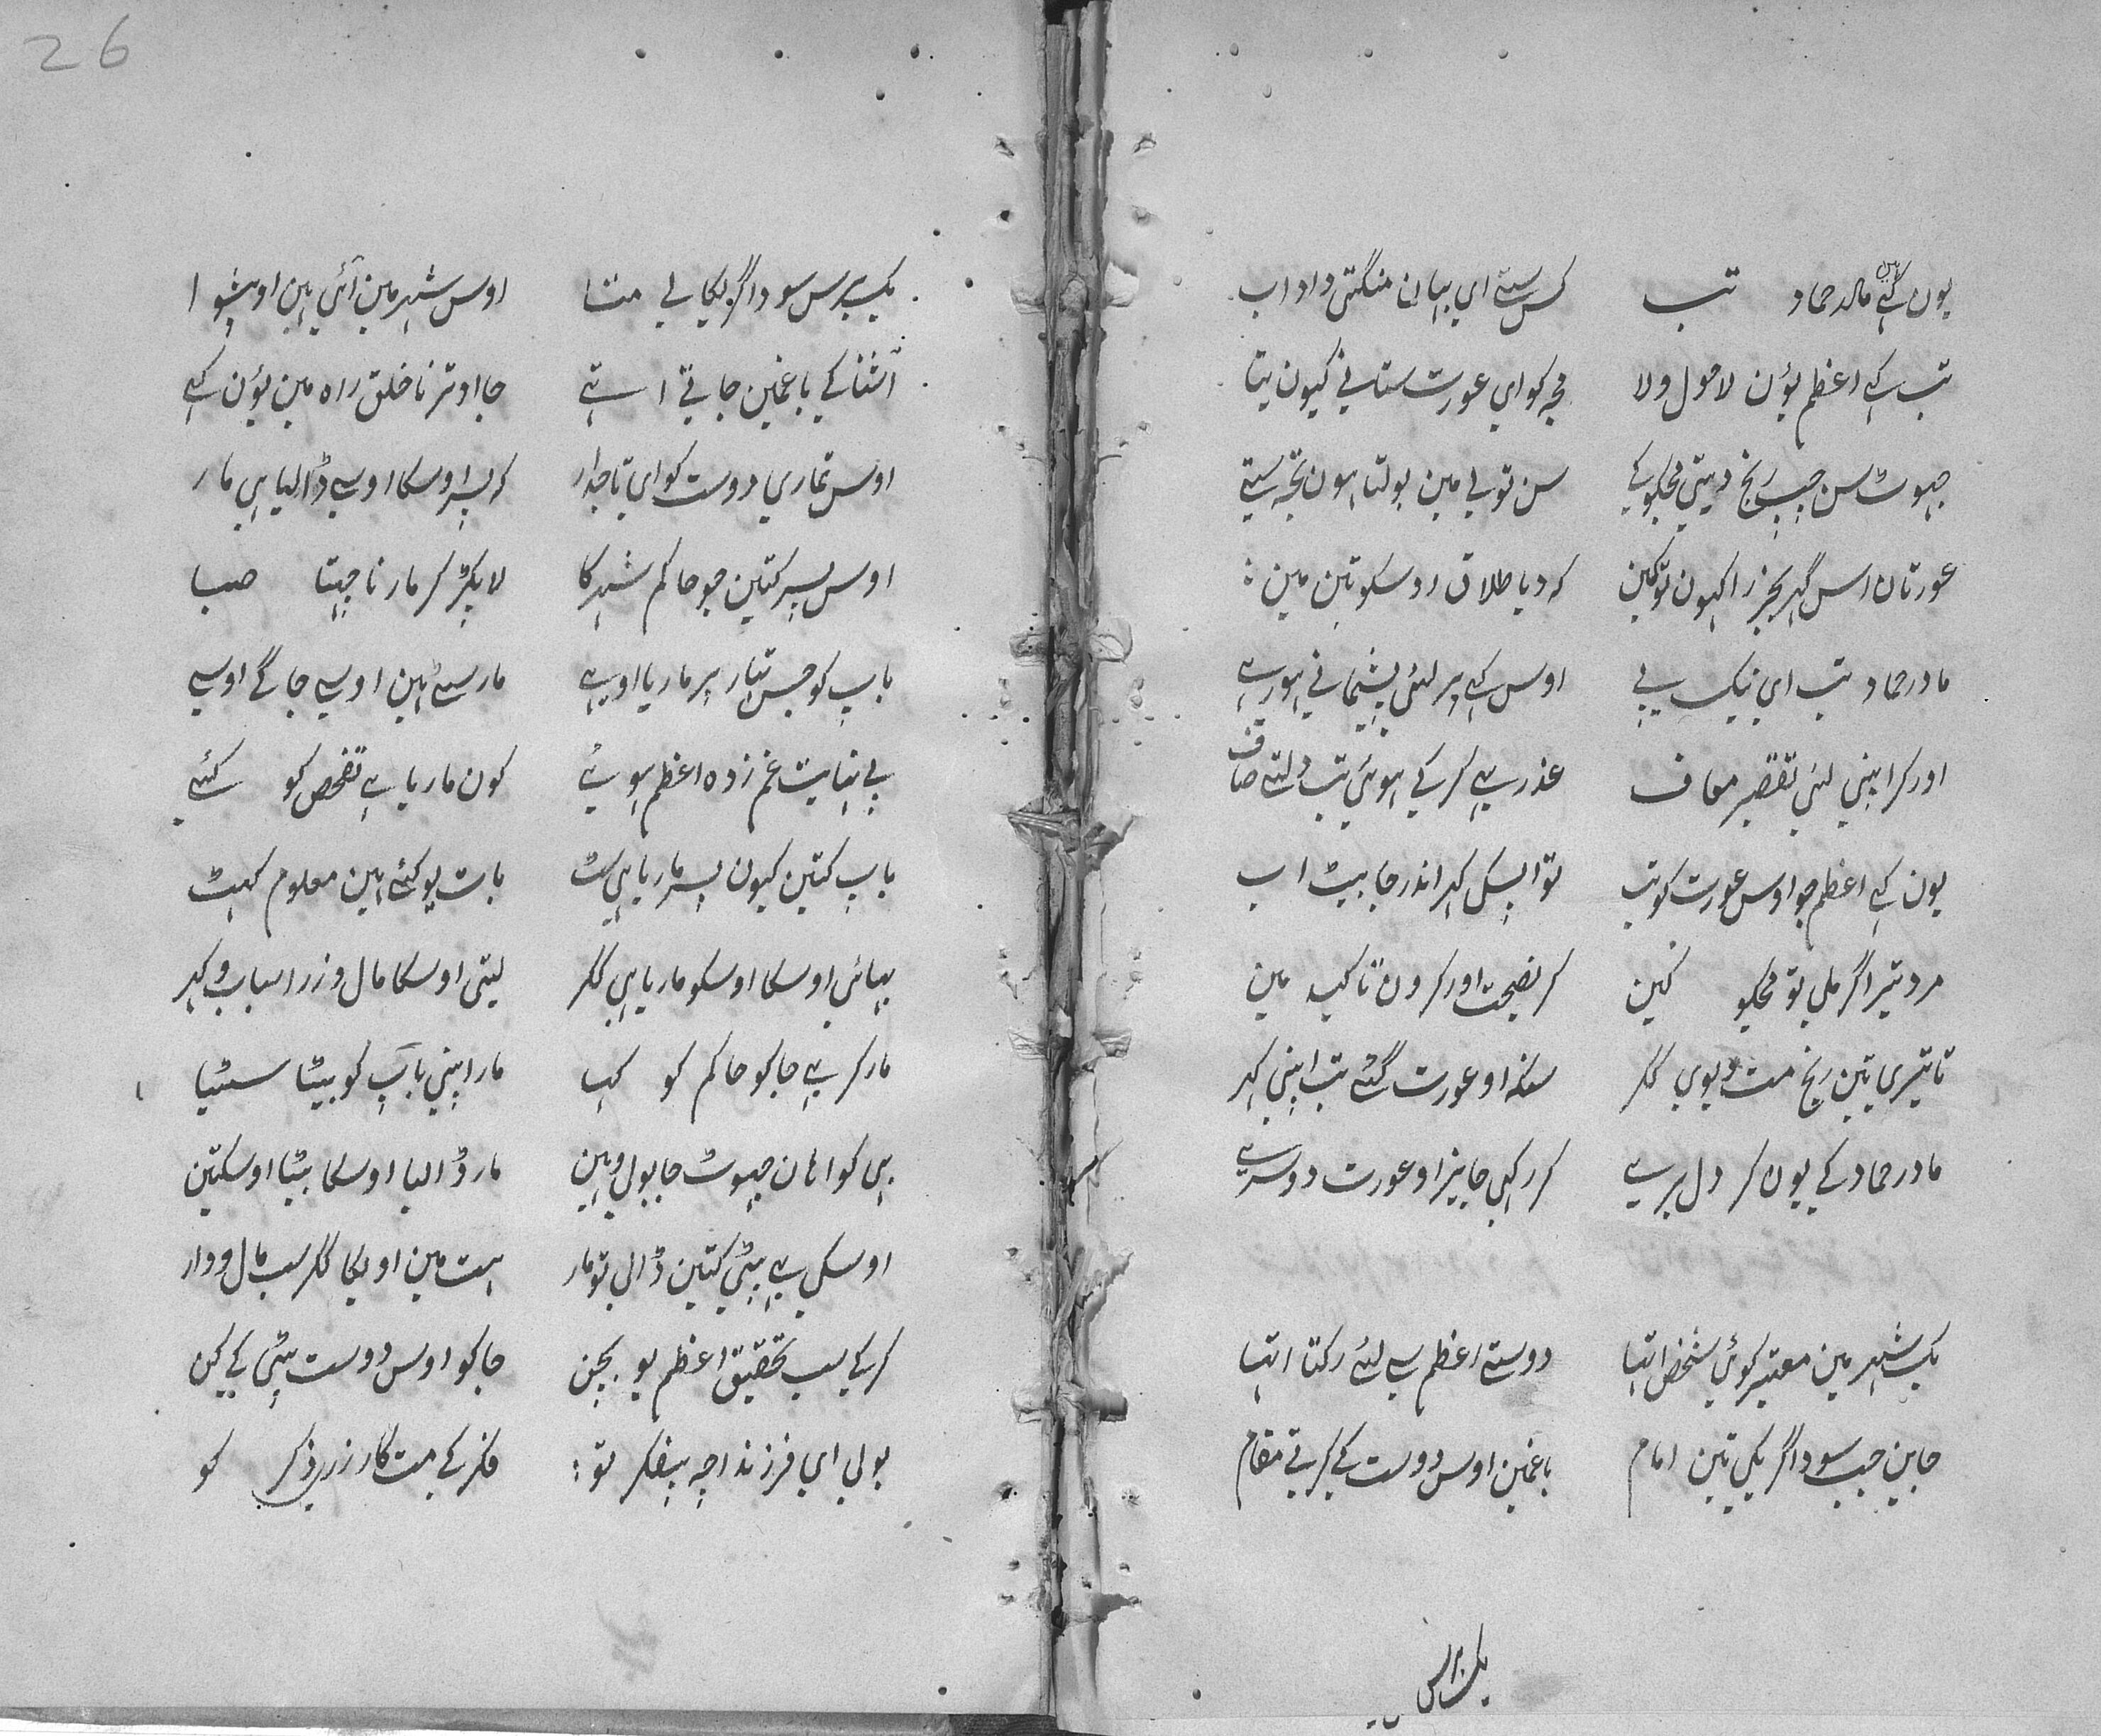 یون کہے ہیں مالدحماد تب کس ستے ای بیان منگتی داد اب
تب کہے اعظم یون لاحول ولا مجہ کو ای عورت ستاتی کیون بتا
جہوٹ سن جب رنج دیتی مجکو کے سن تو بی مین بولتا ہون تجہ ستے
عورتان اس کہر بجز راکہون تو کین کہ دیا طلاق اوسکو تین مین
مادر حماد تب ای نیک پے اوس کہے پر لئی پشیمانی ہو رہے
اور کر اپنی لئی تقصیر معاف عذر سے کر کے ہوئی تب دلستے صاف
یون کہے اعظم جو اوس عورت کو تب تو اپس کے کہر اندر جا بیٹ اب
مرد تیرا گر ملی تو مجکو کہین کر نصیحت اور کرون تاکید مین
تا تیری تین رنج مت دیوی مگر سنکہ او عورت گئے تب اپنی کہر
مادر حماد کے یون کر دل پرے کر رکہی جایز او عورت دوسرے
یک شہر مین معتبر کوئی شخص اتہا دوستے اعظم سے لئے رکتا اتہا
جاین جب سوداگری کے تین امام باغمین اوس دوست کے کرتے مقام
یک برس
26
یک برس سوداگریکا لی متا اوس شہر مین آئی ہین او پیشوا
آشنا کے باغمین جاتے اتہے جا اوترنا خلق راہ مین یون کہے
اوس تماری دوست کو ای تاجدار کہ پسر اوسکا اوسے ڈالیا ہی مار
اوس پسر کتین جو حاکم شہر کا لا پکڑ کر مارنا چہتا صبا
باپ کو جس ٹہار پر ماریا اوسے مارستے ہین اوسے جاگے اوسے
بے نہایت غم زدہ اعظم ہوئے کون ماریا ہے تفحص کو کئے
باپ کتین کیون پسر ماریا ہی کٹ بات یو کئے ہین معلوم کہٹ
بہائی اوسکا اوسکو ماریا ہی مگر لیتی اوسکا مال و زر اسباب و کہر
مار کر سے جا کو حاکم کو کہیا مار اپنی باپ کو بیٹا سٹیا
ہی کواہان جہوٹ جا بول وہین مار ڈالیا اوسکا بیٹا اوسکتین
اوسکی سے بیٹی کتین ڈالی تو مار ہت مین اویگا مگر سب مال و دار
کرکے سب تحقیق اعظم یو بچن جا کو اوس دوست بیٹی کے کن
بولی ای فرزند اچہ بیفکر تو فکر کے مت کار زر ذکر کو